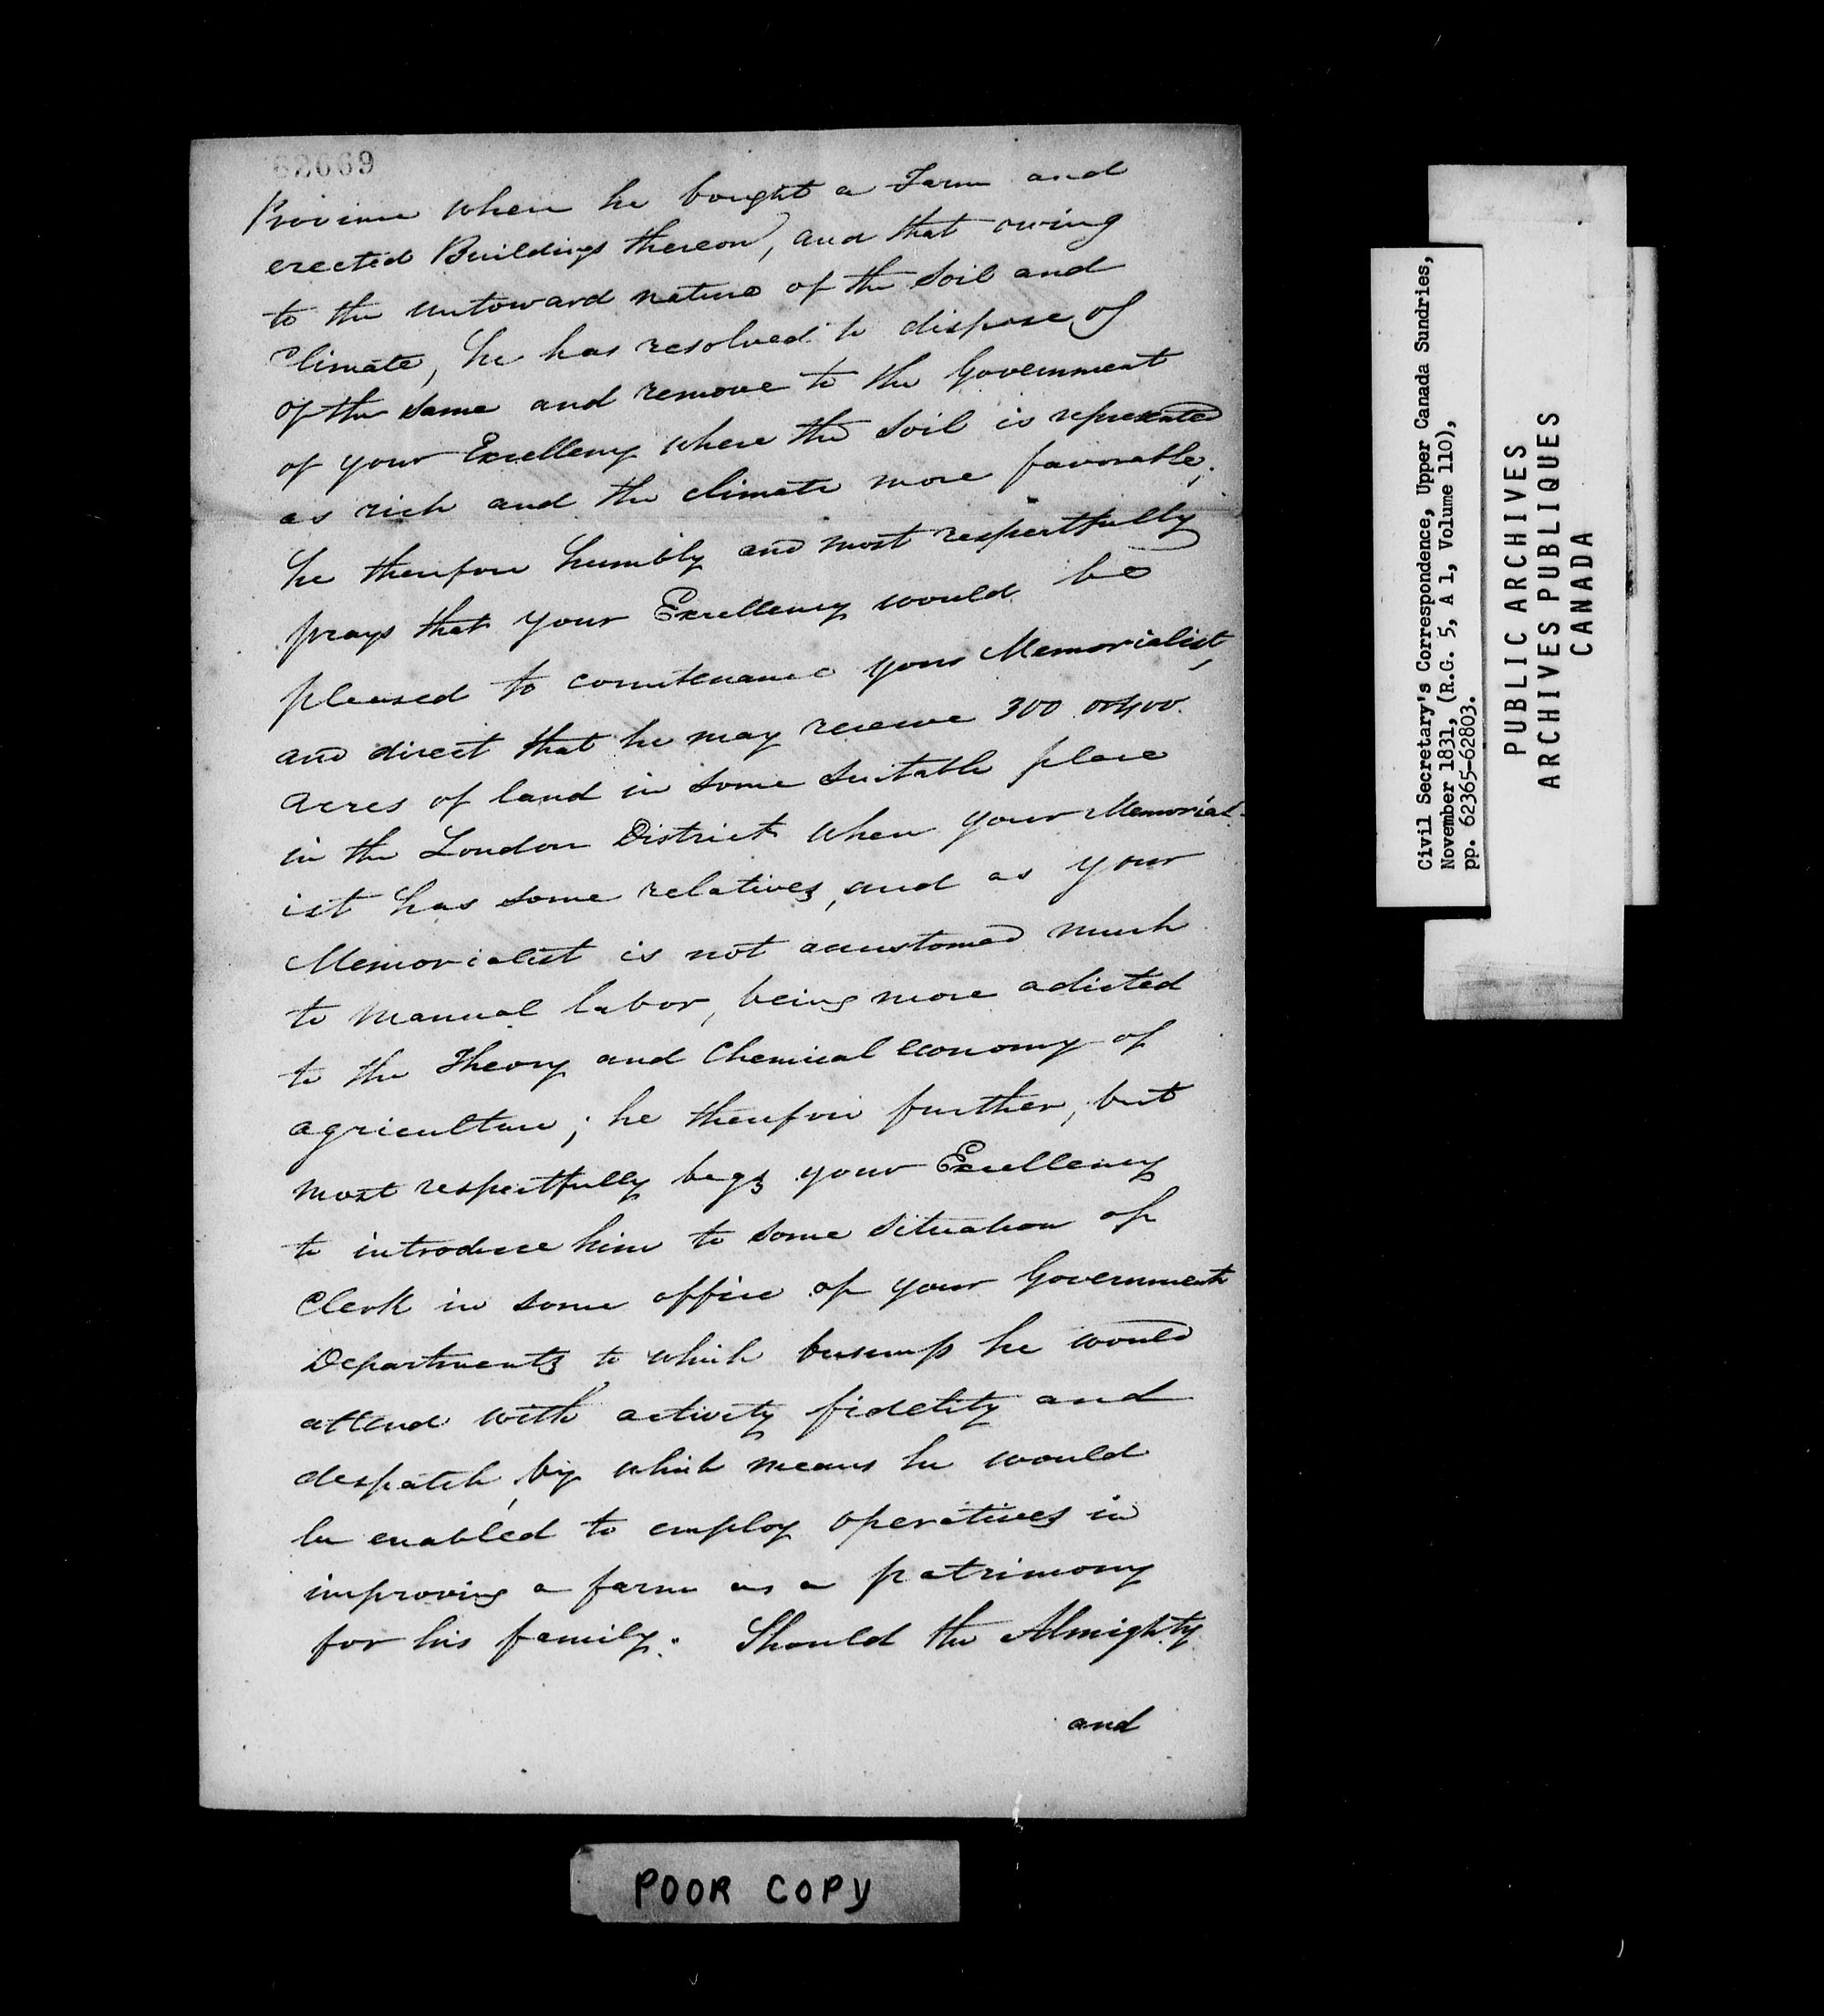 62669
Province where he bought a Farm and
erected Buildings thereon, and that owing
to the untoward nature of the Soil and
Climate, he has resolved to dispose of
of the same and remove to the Government
of your Excellency where the Soil is represented
as rich and the climate more favorable,
he therefore humbly and most respectfully
prays that your Excellency would be
pleased to countenance your Memorialist,
and direct that he may receive 300 or 400
acres of land in some suitable place
in the London District where your Memorial-
ist has some relatives, and as your
Memorialist is not accustomed much
to manual labor, being more adicted
to the Theory and Chemical economy of
agriculture; he therefore further, but
most respectfully begs your Excellency
to introduce him to some situation of
Clerk in some office of your Government
Departments to which business he would
attend with activity fidelity and
despatch, by which means he would
be enabled to employ operatives in
improving a farm as a patrimony
for his family. Should the Almighty
and
POOR COPY
Civil Secretary's Correspondence, Upper Canada Sundries,
November 1831, (R.G. 5, A 1, Volume 110),
pp. 62365-62803.
PUBLIC ARCHIVES
ARCHIVES PUBLIQUES
CANADA